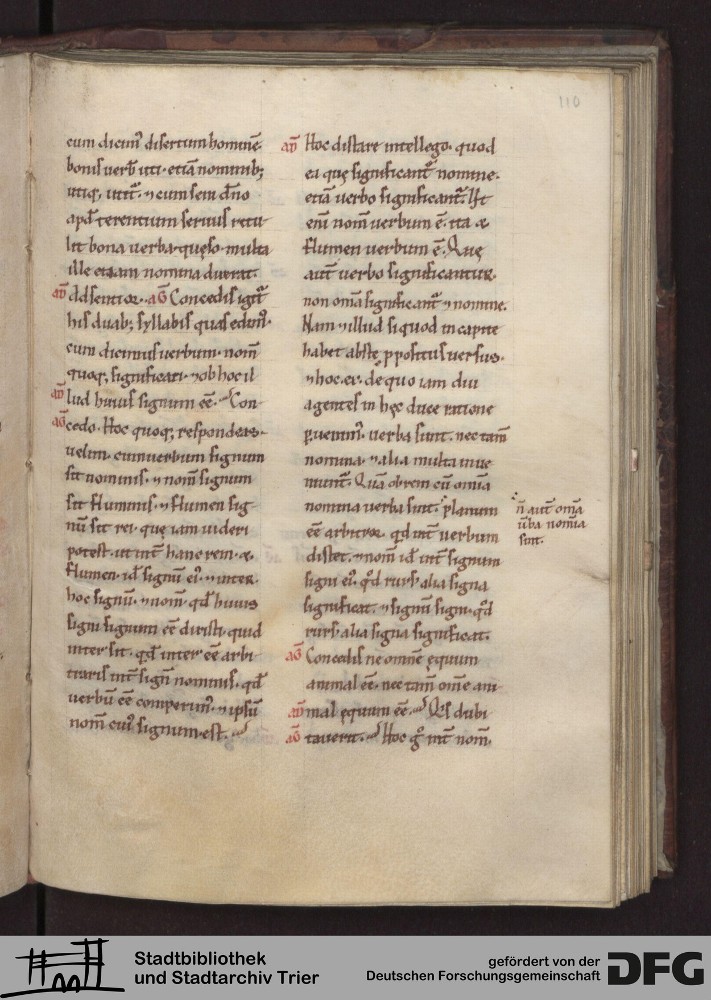 110
cum dicim᷒ disertum hominē·
bonis verb̄ uti· etiā nominib;
utiq; utit᷑· ⁊ cum sem d̄no
apd̄ terentium seruus retu
lit bona uerba quęso· multa
ille etiam nomina dixerat·
aD̄ Adsentior· aḠ Concedis igit᷑
his duab; syllabis quas edim᷒·
cum dicimus uerbum· nom̄
quoq; significari· ⁊ ob hoc il
aD̄ lud huius signum eē· Con
aḠ cedo· Hoc quoq; respondeas
uelim· cum uerbum signum
sit nominis· ⁊ nom̄ signum
sit fluminis· ⁊ flumen sig
nū sit rei· que iam uideri
potest· ut int̄ hanc rem· &
flumen· id ē signū ei᷒· ⁊ inter
hoc signū· ⁊ nom̄· qd̄ huius
signi signum eē dixisti· quid
intersit· qd̄ inter eē arbi
traris int̄ sign̄ nominis· qd̄
uerbū eē comperim᷒· ⁊ ipsū
nom̄ cui᷒ signum est·
aD̄ Hoc distare intellego· quod
ea quę significant᷑ nomine·
etiā uerbo significant᷑· Ut
eni nom̄ uerbum ē· ita &
flumen uerbum ē· Quę
aut̄ uerbo significantur·
non om̄ia significant᷑ ⁊ nomine·
Nam ⁊ illud si quod in capite
habet abs te ppositus uersus·
⁊ hoc· ex· de quo iam diu
agentes in hęc duce ratione
puenim᷒· uerba sunt· nec tam̄
nomina· ⁊ alia multa inue
niunt᷑· Quā obrem cū omīa
nomina uerba sint· planum
eē arbitror· qd̄ int̄ uerbum
distet· ⁊ nom̄ id ē int̄ signum
signi ei᷒· qd̄ rurs᷒ alia signa
significat· ⁊ signū signi· qd̄
rurs᷒ alia signa significat·
aḠ Concedis ne omnē equum
animal eē· nec tam̄ om̄e ani
aD̄ mal equum eē· Q̄s dubi
aḠ tauerit· Hoc g° int̄ nom̄·
n̄ aut̄ om̄ia
ūba nom̄ia
sunt·
Stadtbibliothek
und Stadtarchiv Trier
gefördert von der
Deutschen Forschungsgemeinschaft
DFG